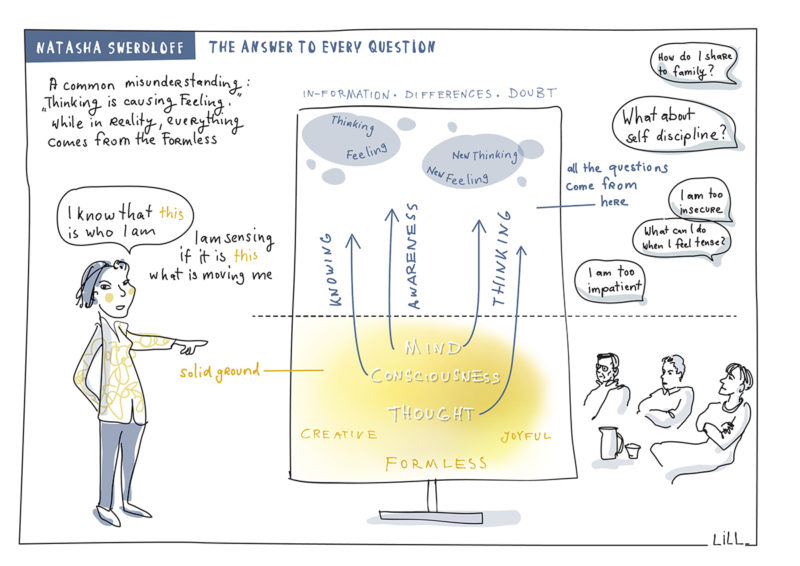 NATASHA SWERDLOFF
THE ANSWER TO EVERY QUESTION
A common misunderstanding:
"Thinking is causing Feeling."
While in Reality, everything
comes from the Formless
I know that this
is who I am
I am sensing
if it is this
what is moving me
solid ground
IN-FORMATION. DIFFERENCES. DOUBT
Thinking
Feeling
New Thinking
New Feeling
KNOWING
AWARENESS
THINKING
MIND
CONSCIOUSNESS
THOUGHT
CREATIVE
JOYFUL
FORMLESS
all the questions
come from
here
How do I share
to family?
What about
self discipline?
I am too
insecure
What can I do
when I feel tense?
I am too
impatient
LiLL